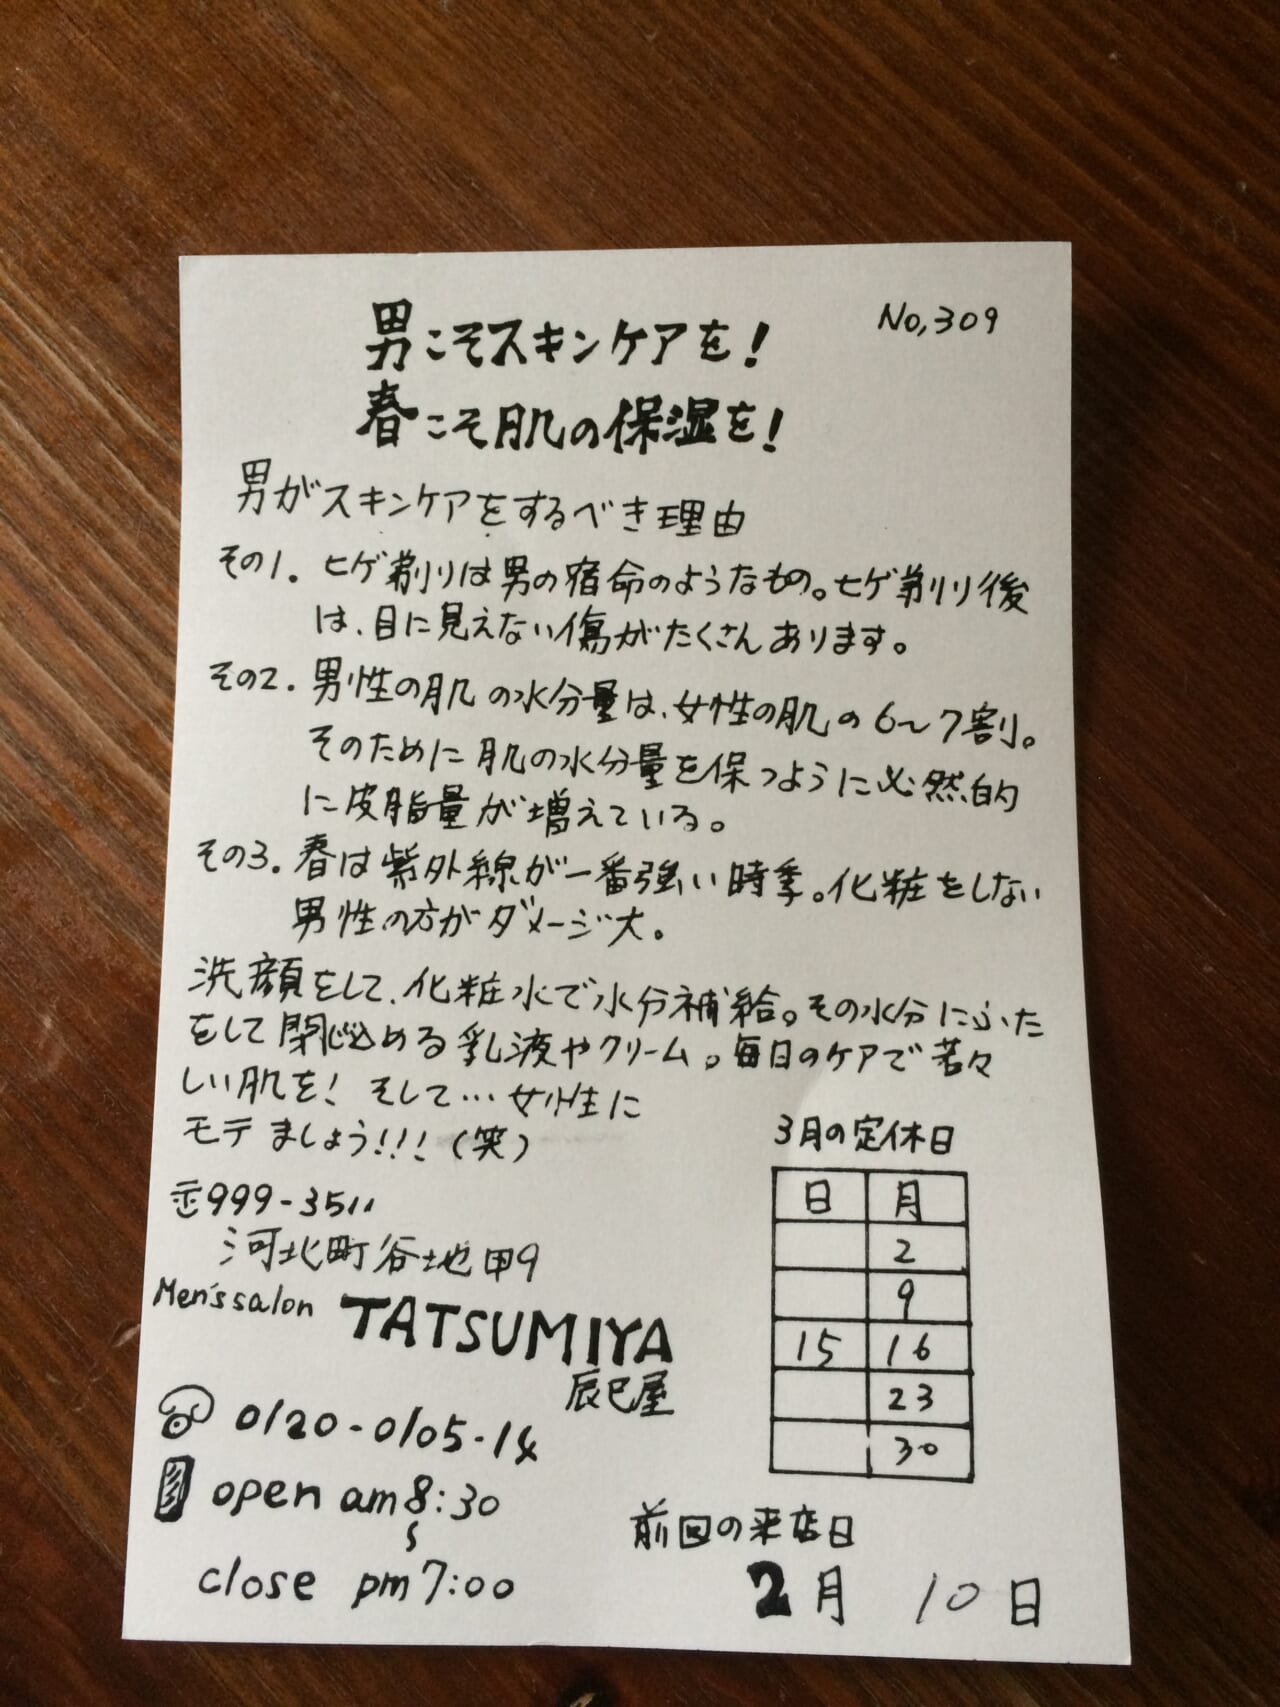 No,309
男こそスキンケアを!
春こそ肌の保湿を!
男がスキンケアをするべき理由
その1. ヒゲ剃りは男の宿命のようなもの。ヒゲ剃り後
は、目に見えない傷がたくさんあります。
その2. 男性の肌の水分量は、女性の肌の6〜7割。
そのために肌の水分量を保つように必然的
に皮脂量が増えている。
その3. 春は紫外線が一番強い時季。化粧をしない
男性の方がダメージ大。
洗顔をして、化粧水で水分補給。その水分にふた
をして閉じ込める乳液やクリーム。毎日のケアで若々
しい肌を! そして…女性に
モテましょう!!!(笑)
〠999-3511
河北町谷地甲9
Men's salon TATSUMIYA
辰巳屋
0120-0105-14
open am 8:30
〜
close pm 7:00
3月の定休日
日 月
2
9
15 16
23
30
前回の来店日
2月 10日